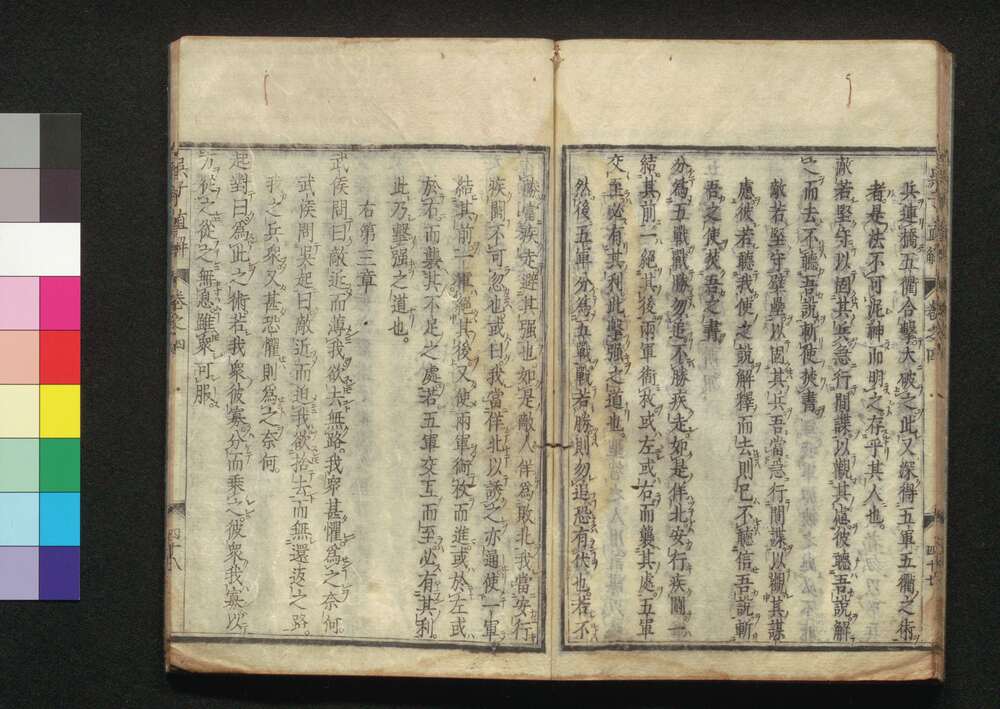 兵連擒五衢合擊大破之此又深得五軍五衢之術
者是法不可泥神而明之存乎其人也
敵若堅守以固其兵急行間諜以觀其慮彼聽吾說解
之而去不聽吾說斬使焚書
敵若堅守壁壘以固其兵吾當急行間諜以觀其謀
慮彼若聽我使之說解釋而去則已不聽信吾說斬
吾之使焚吾之書
分為五戰戰勝勿追不勝疾走如是佯北安行疾鬪一
結其前一絕其後兩軍銜枚或左或右而襲其處五軍
交至必有其利此擊强之道也
然後五軍分為五戰戰若勝則勿追恐有伏也若不
勝當疾走避其强也如是敵人佯為敗北我當安行
疾鬪不可忽也或曰我當佯北以誘之亦通使一軍
結其前一軍絕其後又使兩軍銜枚而進或於左或
於右而襲其不足之處若五軍交互而至必有其利
此乃擊强之道也。
右第三章
武侯問曰敵近而薄我欲去無路。我眾甚懼為之奈何。
武侯問吳起曰敵近而迫我欲捨去而無還返之路。
我之兵眾又甚恐懼則為之奈何。
起對曰為此之術若我眾彼寡分而乘之彼眾我寡以
方從之從之無息雖眾可服
吳子直解
卷之四
四十七
四十八